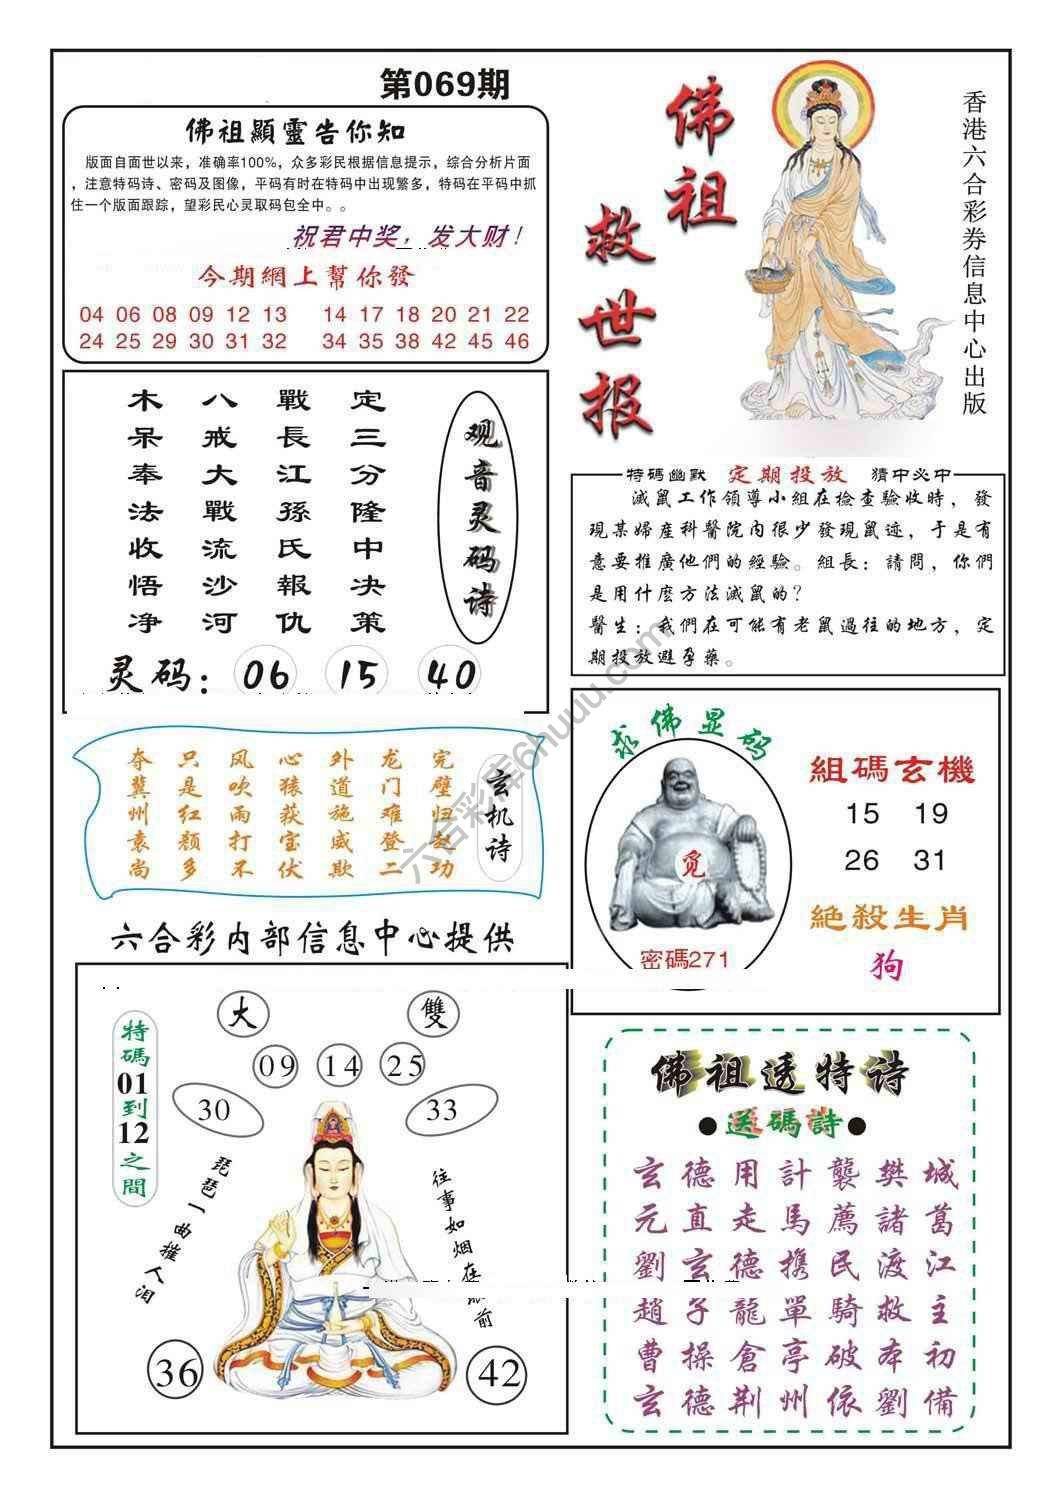 第069期
佛祖顯靈告你知
版面自面世以来，准确率100%，众多彩民根据信息提示，综合分析片面
，注意特码诗、密码及图像，平码有时在特码中出现繁多，特码在平码中抓
住一个版面跟踪，望彩民心灵取码包全中。。
祝君中奖，发大财！
今期網上幫你發
04 06 08 09 12 13 14 17 18 20 21 22
24 25 29 30 31 32 34 35 38 42 45 46
佛祖
救世报
香港六合彩券信息中心出版
观音灵码诗
定三分隆中决策
戰長江孫氏報仇
八戒大戰流沙河
木呆奉法收悟净
灵码：06 15 40
特碼幽默 定期投放 猜中必中
滅鼠工作領導小組在檢查驗收時，發
現某婦産科醫院内很少發現鼠迹，于是有
意要推廣他們的經驗。組長：請問，你們
是用什麽方法滅鼠的？
醫生：我們在可能有老鼠過往的地方，定
期投放避孕藥。
玄机诗
完璧归赵功
龙门难登二
外道施威欺
心猿获宝伏
风吹雨打不
只是红颜多
夺冀州袁尚
求佛显码
觅
密碼271
組碼玄機
15 19
26 31
絶殺生肖
狗
六合彩内部信息中心提供
大 雙
09 14 25
30 33
特碼01到12之間
琵琶一曲摧人泪
往事如烟在 前
36 42
佛祖透特诗
●送碼詩●
玄德用計襲樊城
元直走馬薦諸葛
劉玄德携民渡江
趙子龍單騎救主
曹操倉亭破本初
玄德荆州依劉備
六合彩库6huuu.com